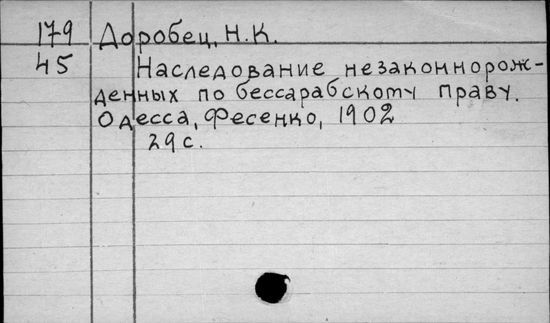 179 Доробец, Н.К.
45 Наследование незаконнорож-
денных по бессарабскому праву.
Одесса, Фесенко, 1902
29 с.